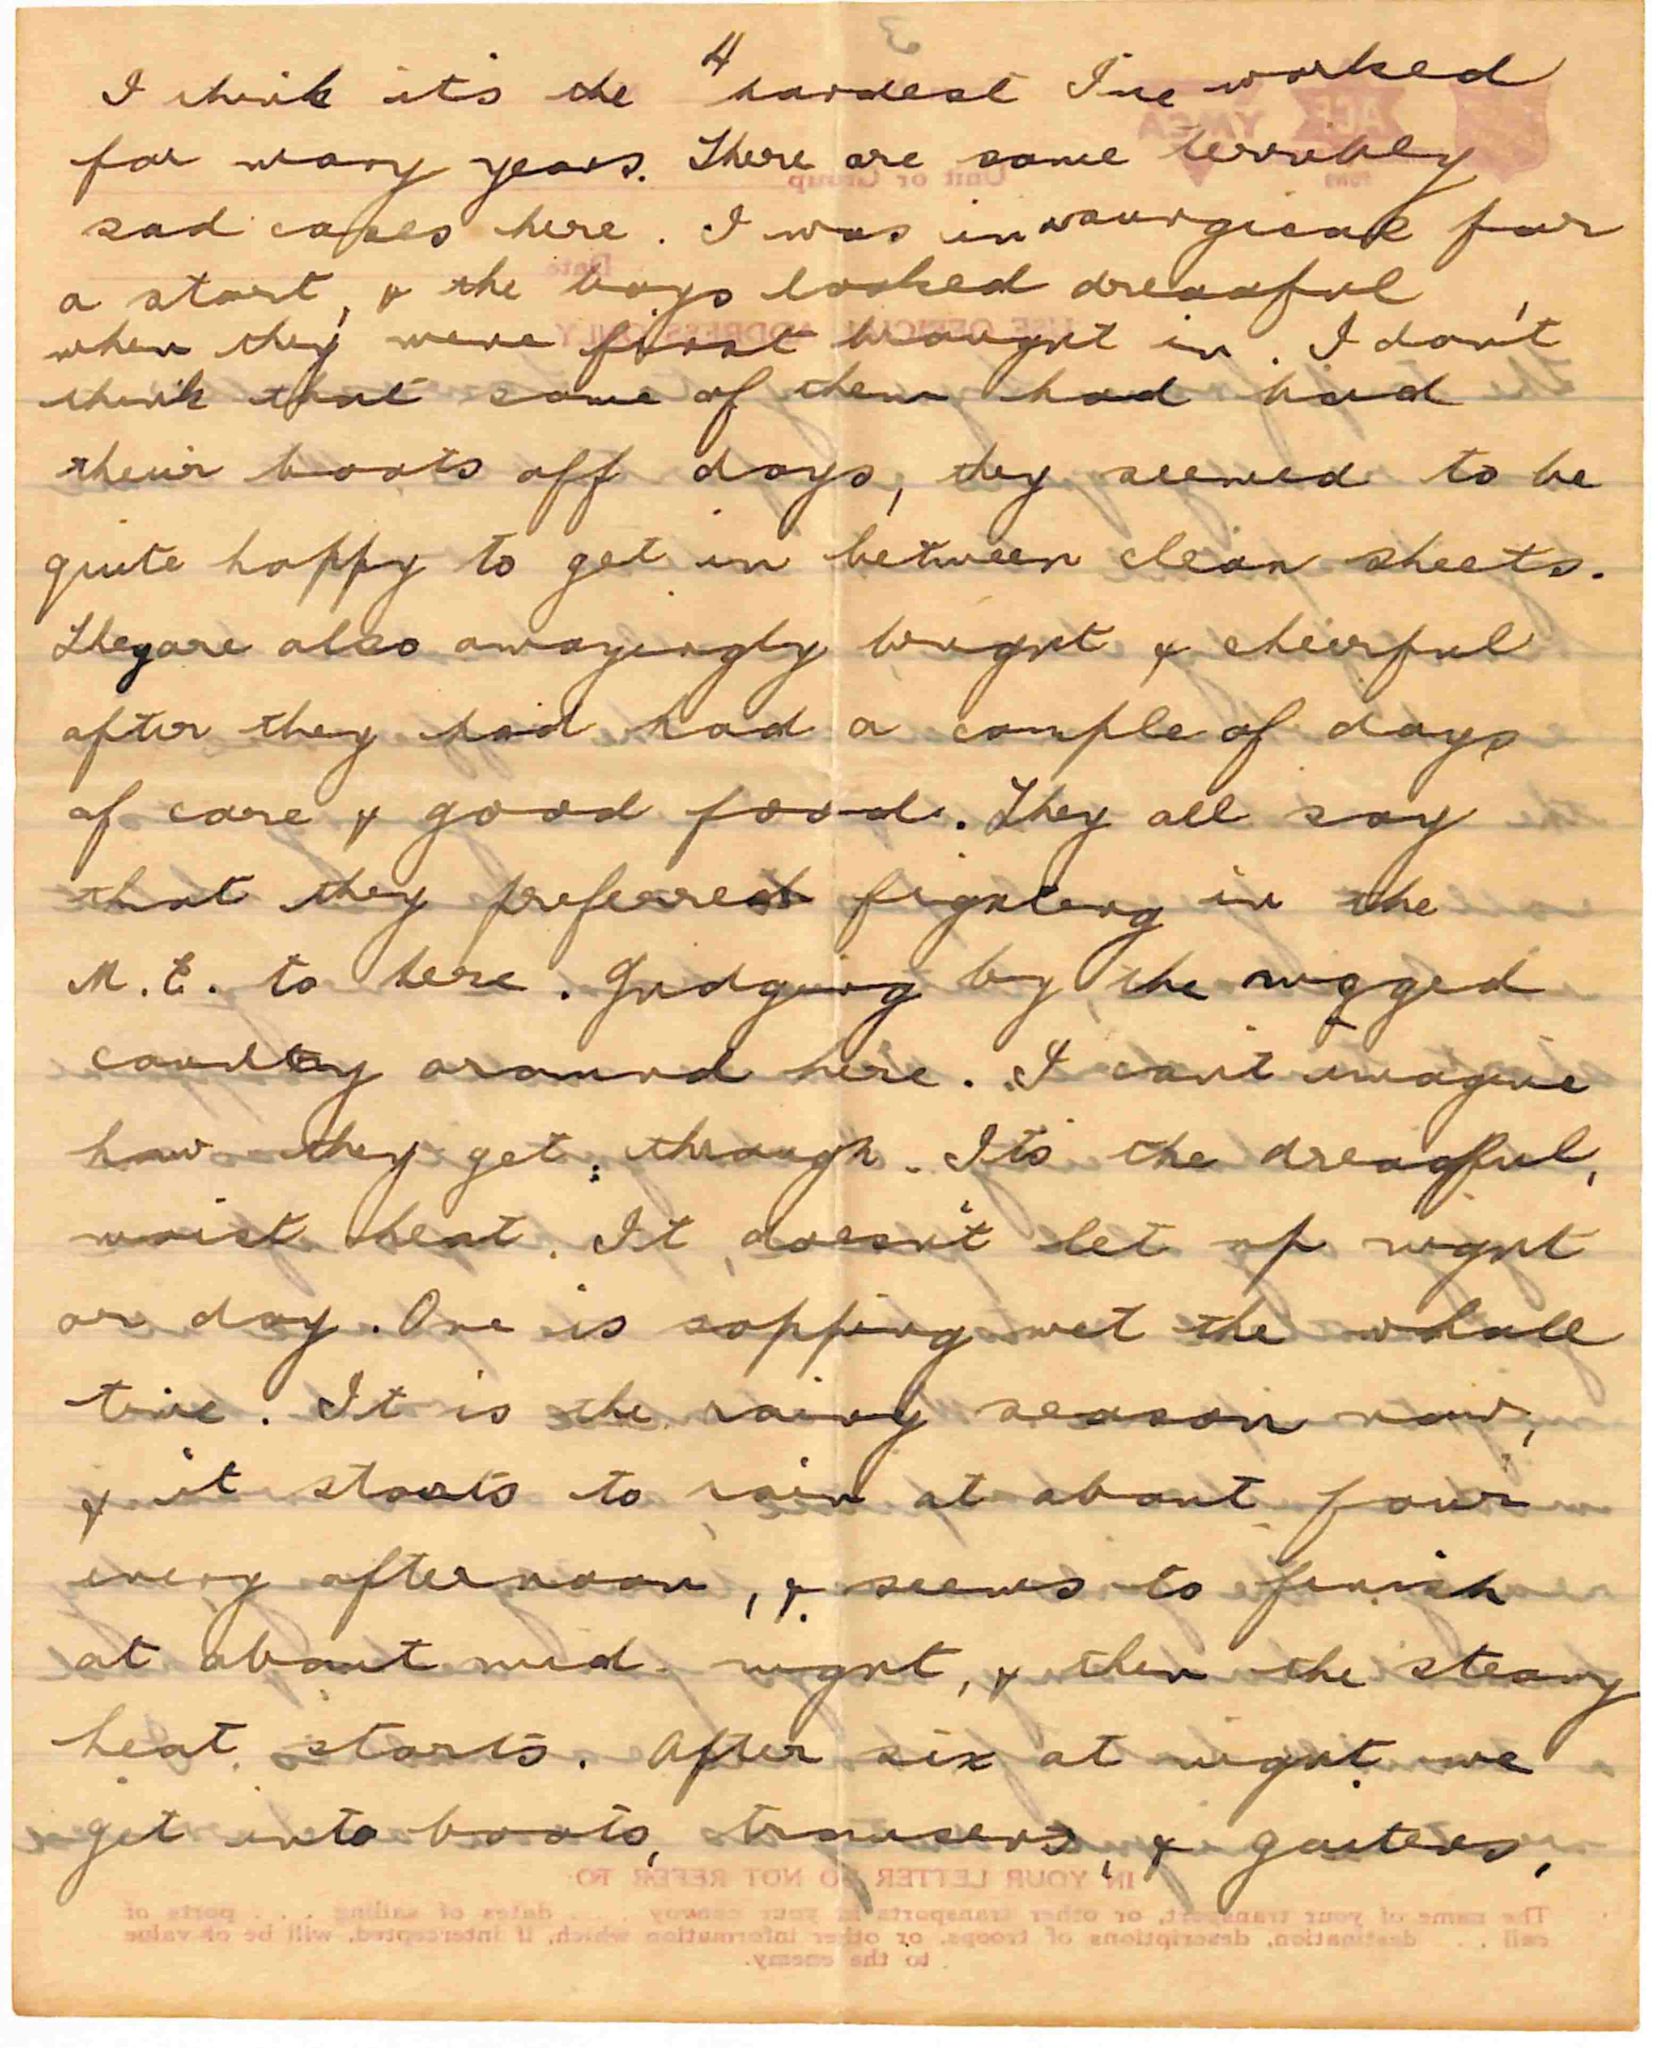 4
I think it's the hardest I've worked
for many years. There are some terribley
sad cases here. I was in surgical for
a start, & the boys looked dreadful
when they were first brought in. I don't
think that some of them had had
their boots off days, they seemed to be
quite happy to get in between clean sheets.
They are also amazingly bright & cheerful
after they had had a couple of days
of care & good food. They all say
that they preferred fighting in the
M.E. to here. Judging by the rugged
country around here. I can't imagine
how they get through. Its the dreadful,
moist heat. It doesn't let up night
or day. One is sopping wet the whole
time. It is the rainy season now,
& it starts to rain at about four
every afternoon, & seems to finish
at about mid-night, & then the steamy
heat starts. After six at night we
get into boots, trousers, & gaiters,
ACF
YMCA
Unit or Group
Date
USE OFFICIAL ADDRESS ONLY
IN YOUR LETTER DO NOT REFER TO:
The name of your transport, or other transports in your convoy . . . dates of sailing . . . ports of
call . . . destination, descriptions of troops, or other information which, if intercepted, will be of value
to the enemy.